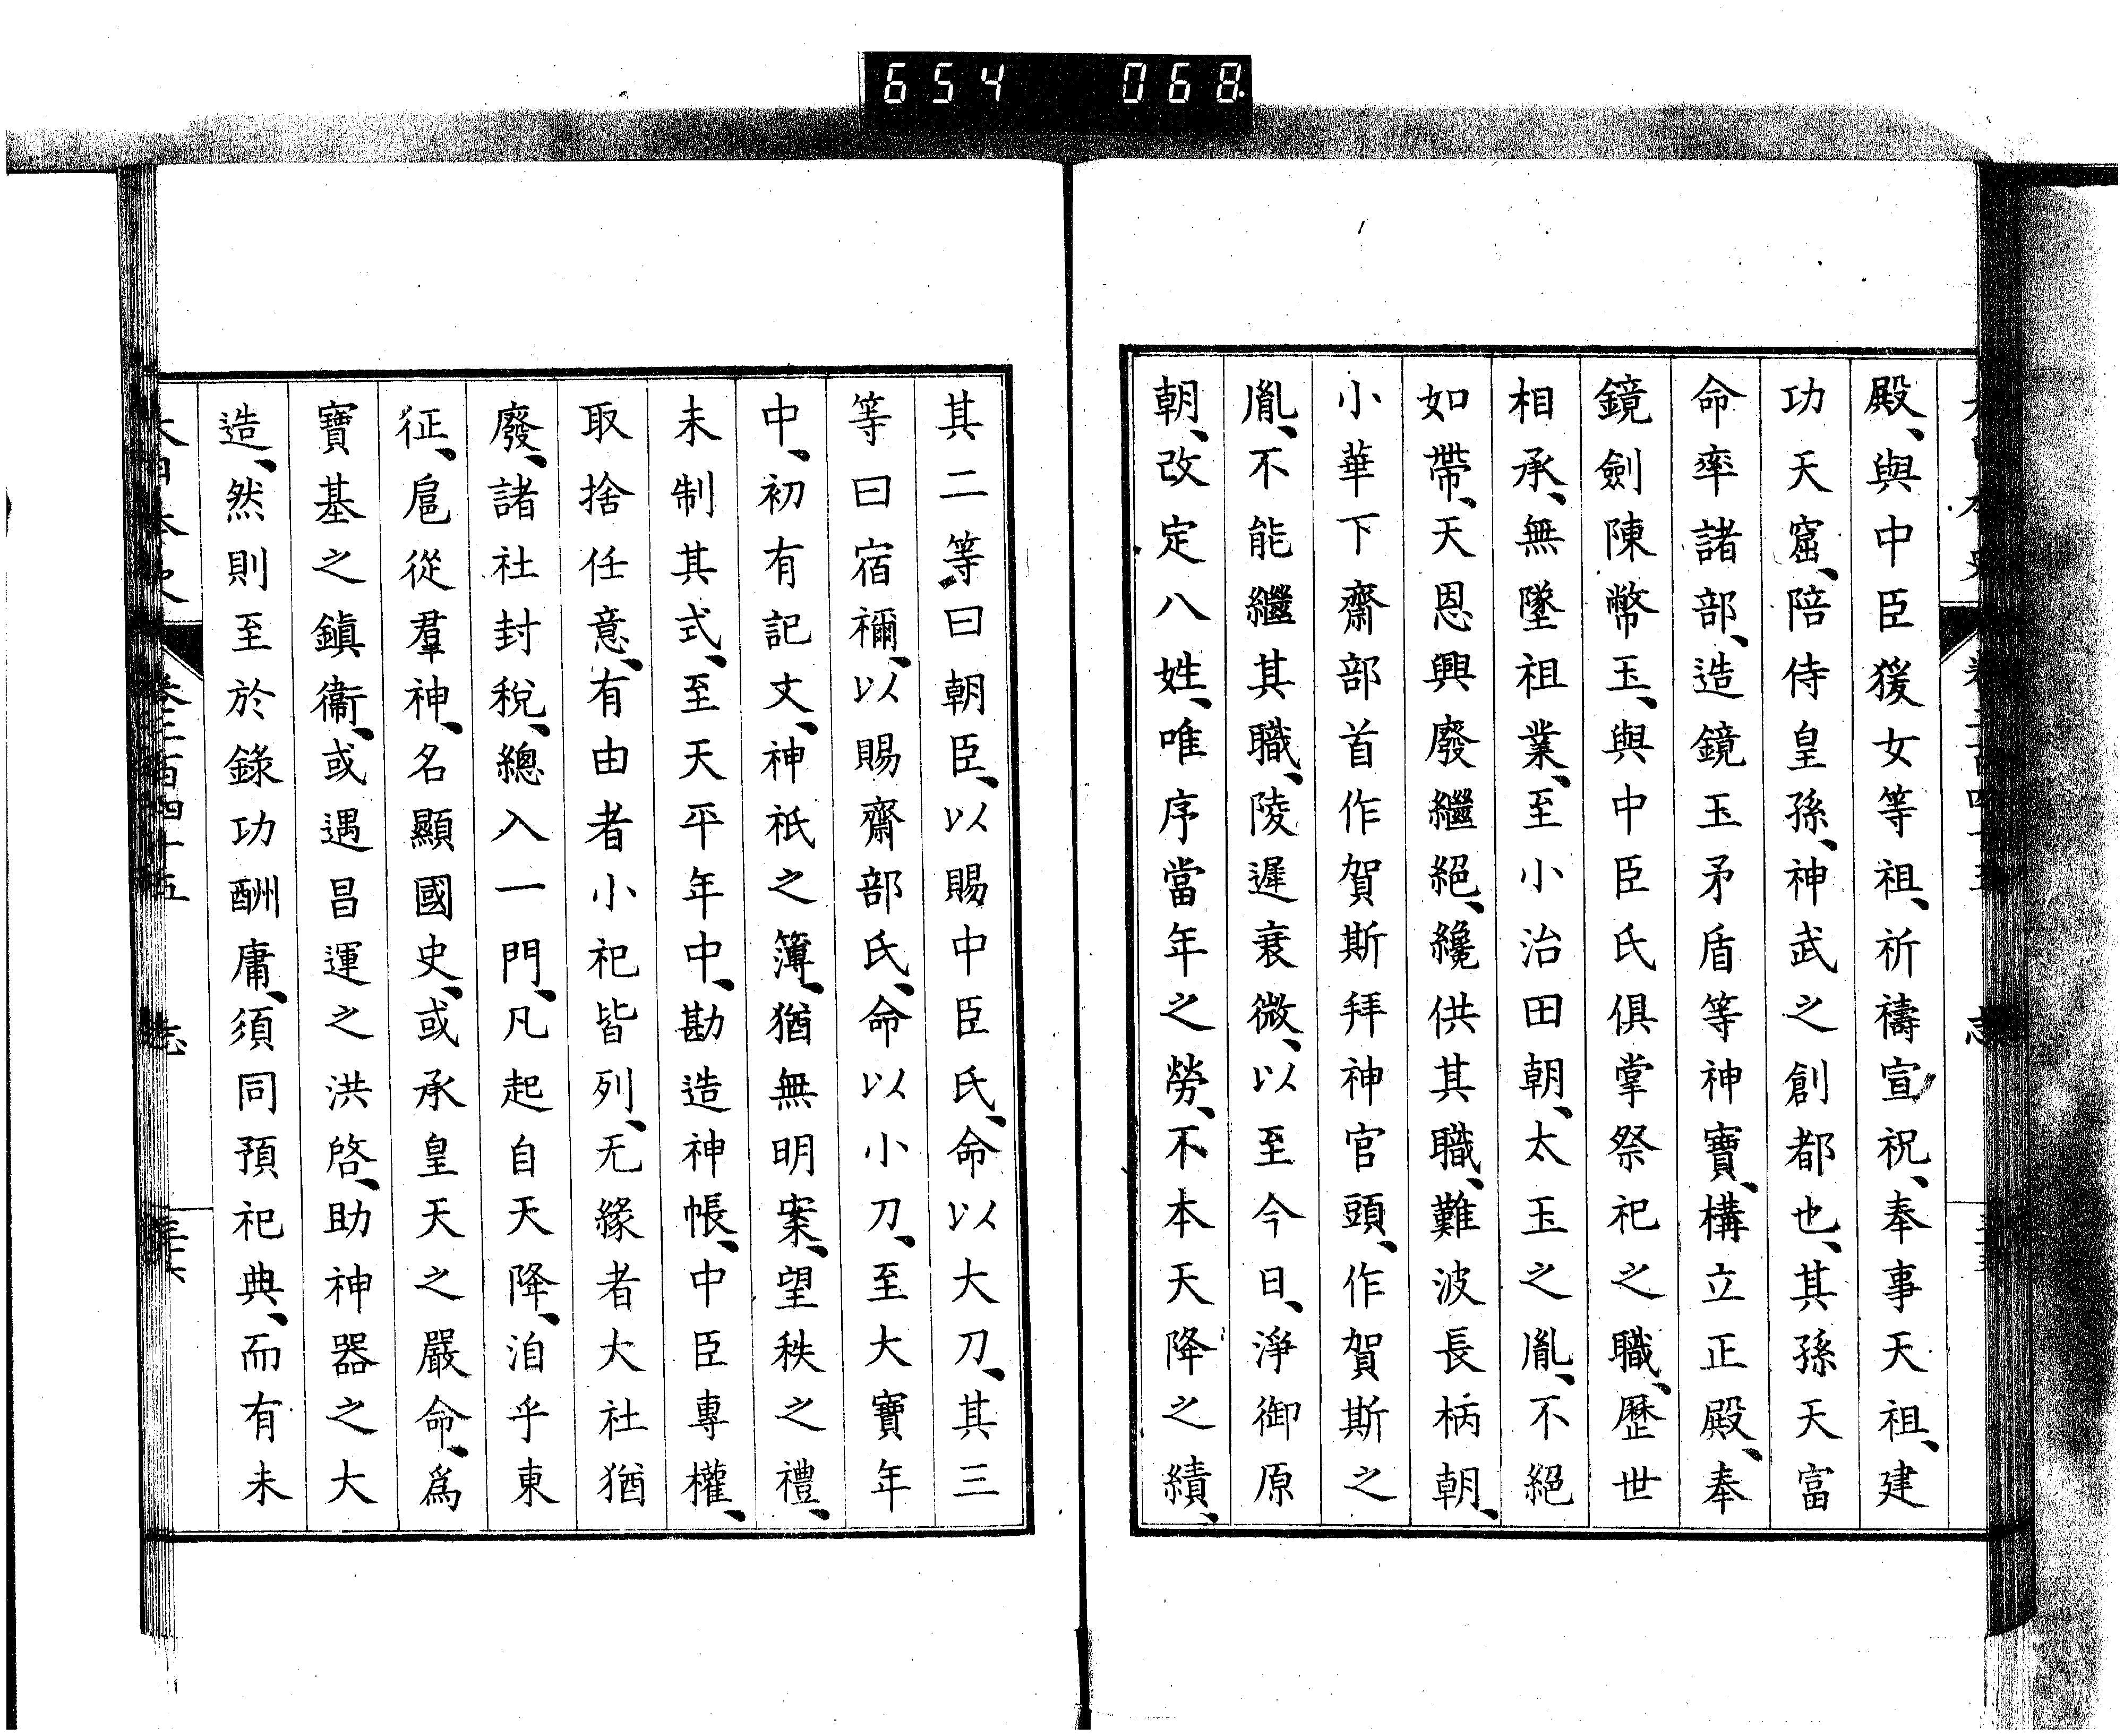 654 068
殿、與中臣猨女等祖、祈禱宣祝、奉事天祖、建
功天窟、陪侍皇孫、神武之創都也、其孫天富
命率諸部、造鏡玉矛盾等神寶、構立正殿、奉
鏡劍陳幣玉、與中臣氏俱掌祭祀之職、歷世
相承、無墜祖業、至小治田朝、太玉之胤、不絕
如帶、天恩興廢繼絕、纔供其職、難波長柄朝、
小華下齋部首作賀斯拜神官頭、作賀斯之
胤、不能繼其職、陵遲衰微、以至今日、淨御原
朝、改定八姓、唯序當年之勞、不本天降之績、
其二等曰朝臣、以賜中臣氏、命以大刀、其三
等曰宿禰、以賜齋部氏、命以小刀、至大寶年
中、初有記文、神祇之簿、猶無明案、望秩之禮、
未制其式、至天平年中、勘造神帳、中臣專權、
取捨任意、有由者小祀皆列、无緣者大社猶
廢、諸社封稅、總入一門、凡起自天降、洎乎東
征、扈從羣神、名顯國史、或承皇天之嚴命、爲
寶基之鎭衞、或遇昌運之洪啓、助神器之大
造、然則至於錄功酬庸、須同預祀典、而有未
大日本史 卷二百四十五 志